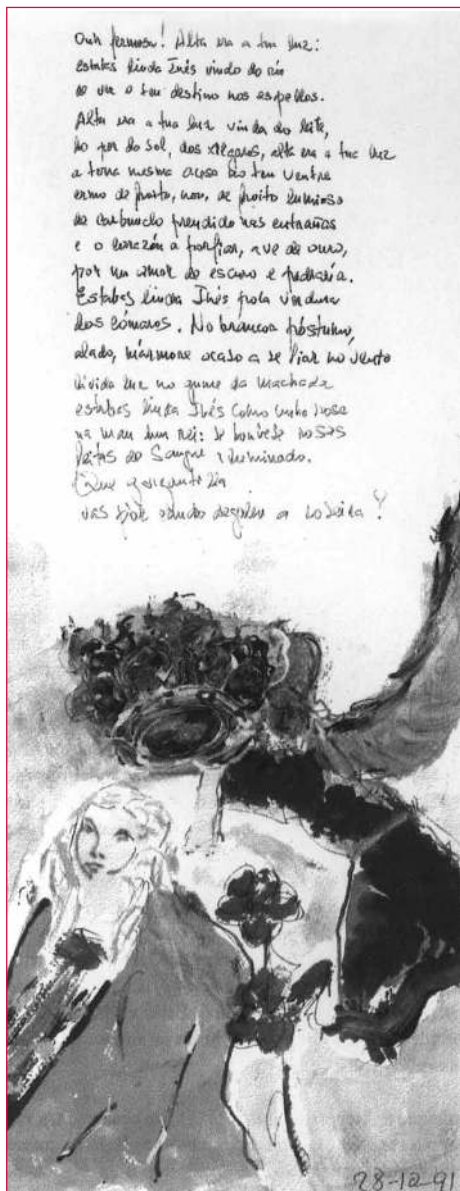 Ouh fermosa! Alta era a tua luz:
estabas linda Inés vindo do río
de ver o teu destino nos espellos.
Alta era a tua luz vinda do leite,
no por do sol, dos alegros, alta era a tua luz
a terra mesma acesa no teu ventre
ermo de froito, non, de froito luminoso
de carbunclo prendido nas entrañas
e o corazón a porfiar, ave de ouro,
por un amor de escuro e pedraria.
Estabas linda Inés pola verdura
dos cómaros. No brancor póstumo,
alado, mármore ocaso a se liar no vento
livida luz no gume da machada
estabas linda Inés como unha rosa
na man dun rei: se houbese rosas
feitas de sangue iluminado.
Que
vas a
28-12-91